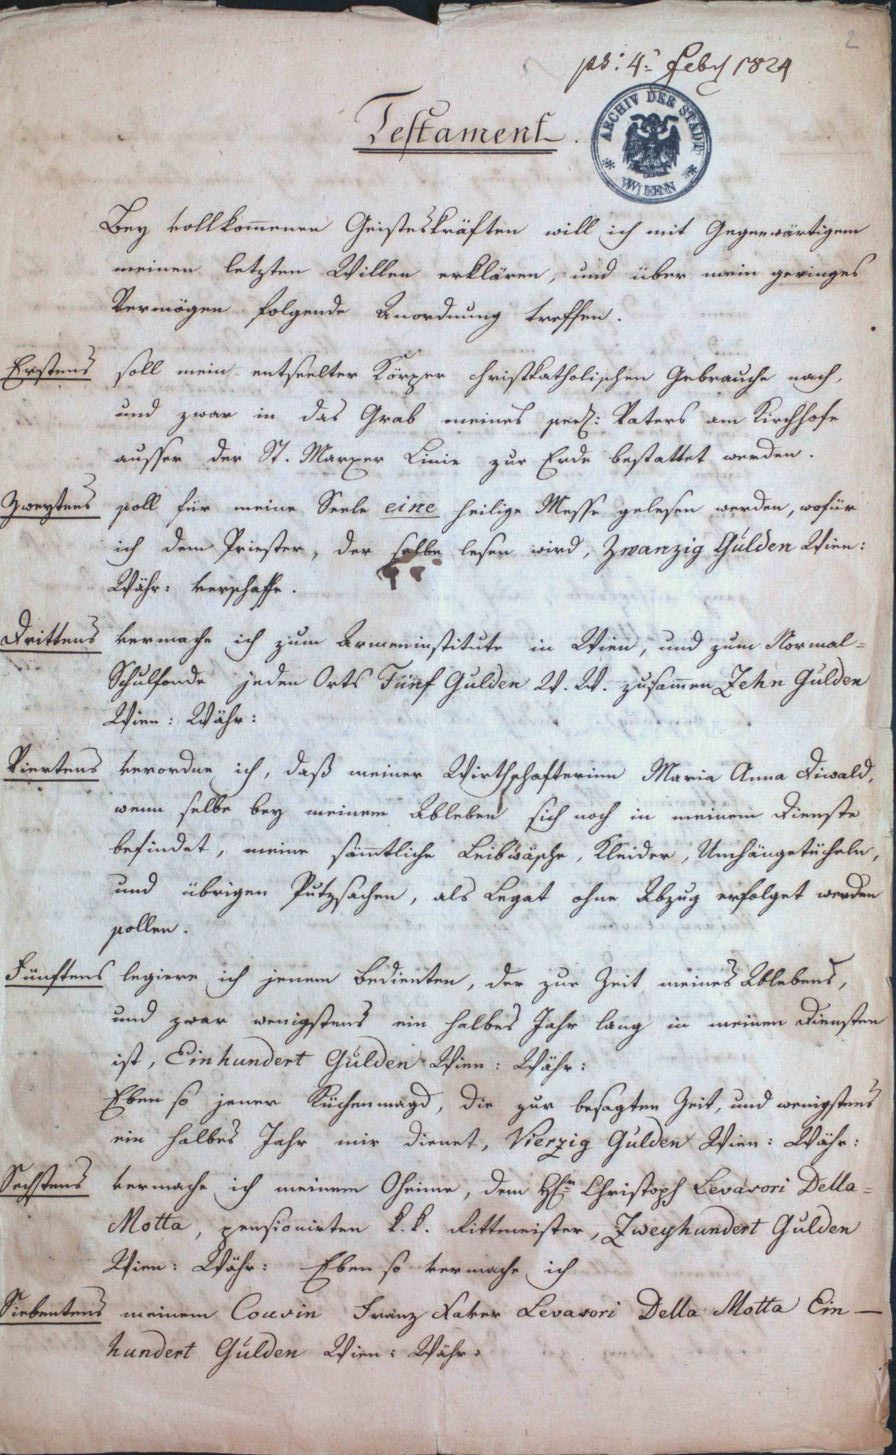 2
ps: 4: Feby 1824
Testament.
ARCHIV DER STADT
WIEN
Bey vollkom̅enen Geisteskräften will ich mit Gegenwärtigem
meinen letzten Willen erklären, und über mein geringes
Vermögen folgende Anordnung treffen.
Erstens soll mein entseelter Körper christkatholischen Gebrauche nach,
und zwar in das Grab meines Vaters am Kirchhofe
ausser der St. Marxer Linie zur Erde bestattet werden.
Zweytens soll für meine Seele eine heilige Messe gelesen werden, wofür
ich dem Priester, der selbe lesen wird, Zwanzig Gulden Wien:
Währ: verschaffe.
Drittens vermache ich zum Armeninstitute in Wien, und zum Normal-
Schulfonde jeden Orts Fünf Gulden W. W. zusam̅en Zehn Gulden
Wien: Währ:
Viertens verordne ich, daß meiner Wirthschafterinn Maria Anna Diwald,
wenn selbe bey meinem Ableben sich noch in meinem Dienste
befindet, meine säm̅tliche Leibwäsche, Kleider, Umhängetücheln,
und übrigen Putzsachen, als Legat ohne Abzug erfolget werden
sollen.
Fünftens legiere ich jenem Bedienten, der zur Zeit meines Ablebens,
und zwar wenigstens ein halbes Jahr lang in meinen Diensten
ist, Einhundert Gulden Wien: Währ:
Eben so jener Küchenmagd, die zur besagten Zeit, und wenigstens
ein halbes Jahr mir dienet, Vierzig Gulden Wien: Währ:
Sechstens vermache ich meinem Oheime, dem H̅n Christoph Levasori Della-
Motta, pensionirten k. k. Rittmeister, Zweyhundert Gulden
Wien: Währ: Eben so vermache ich
Siebentens meinem Cousin Franz Xaver Levasori Della Motta Ein-
hundert Gulden Wien: Währ: